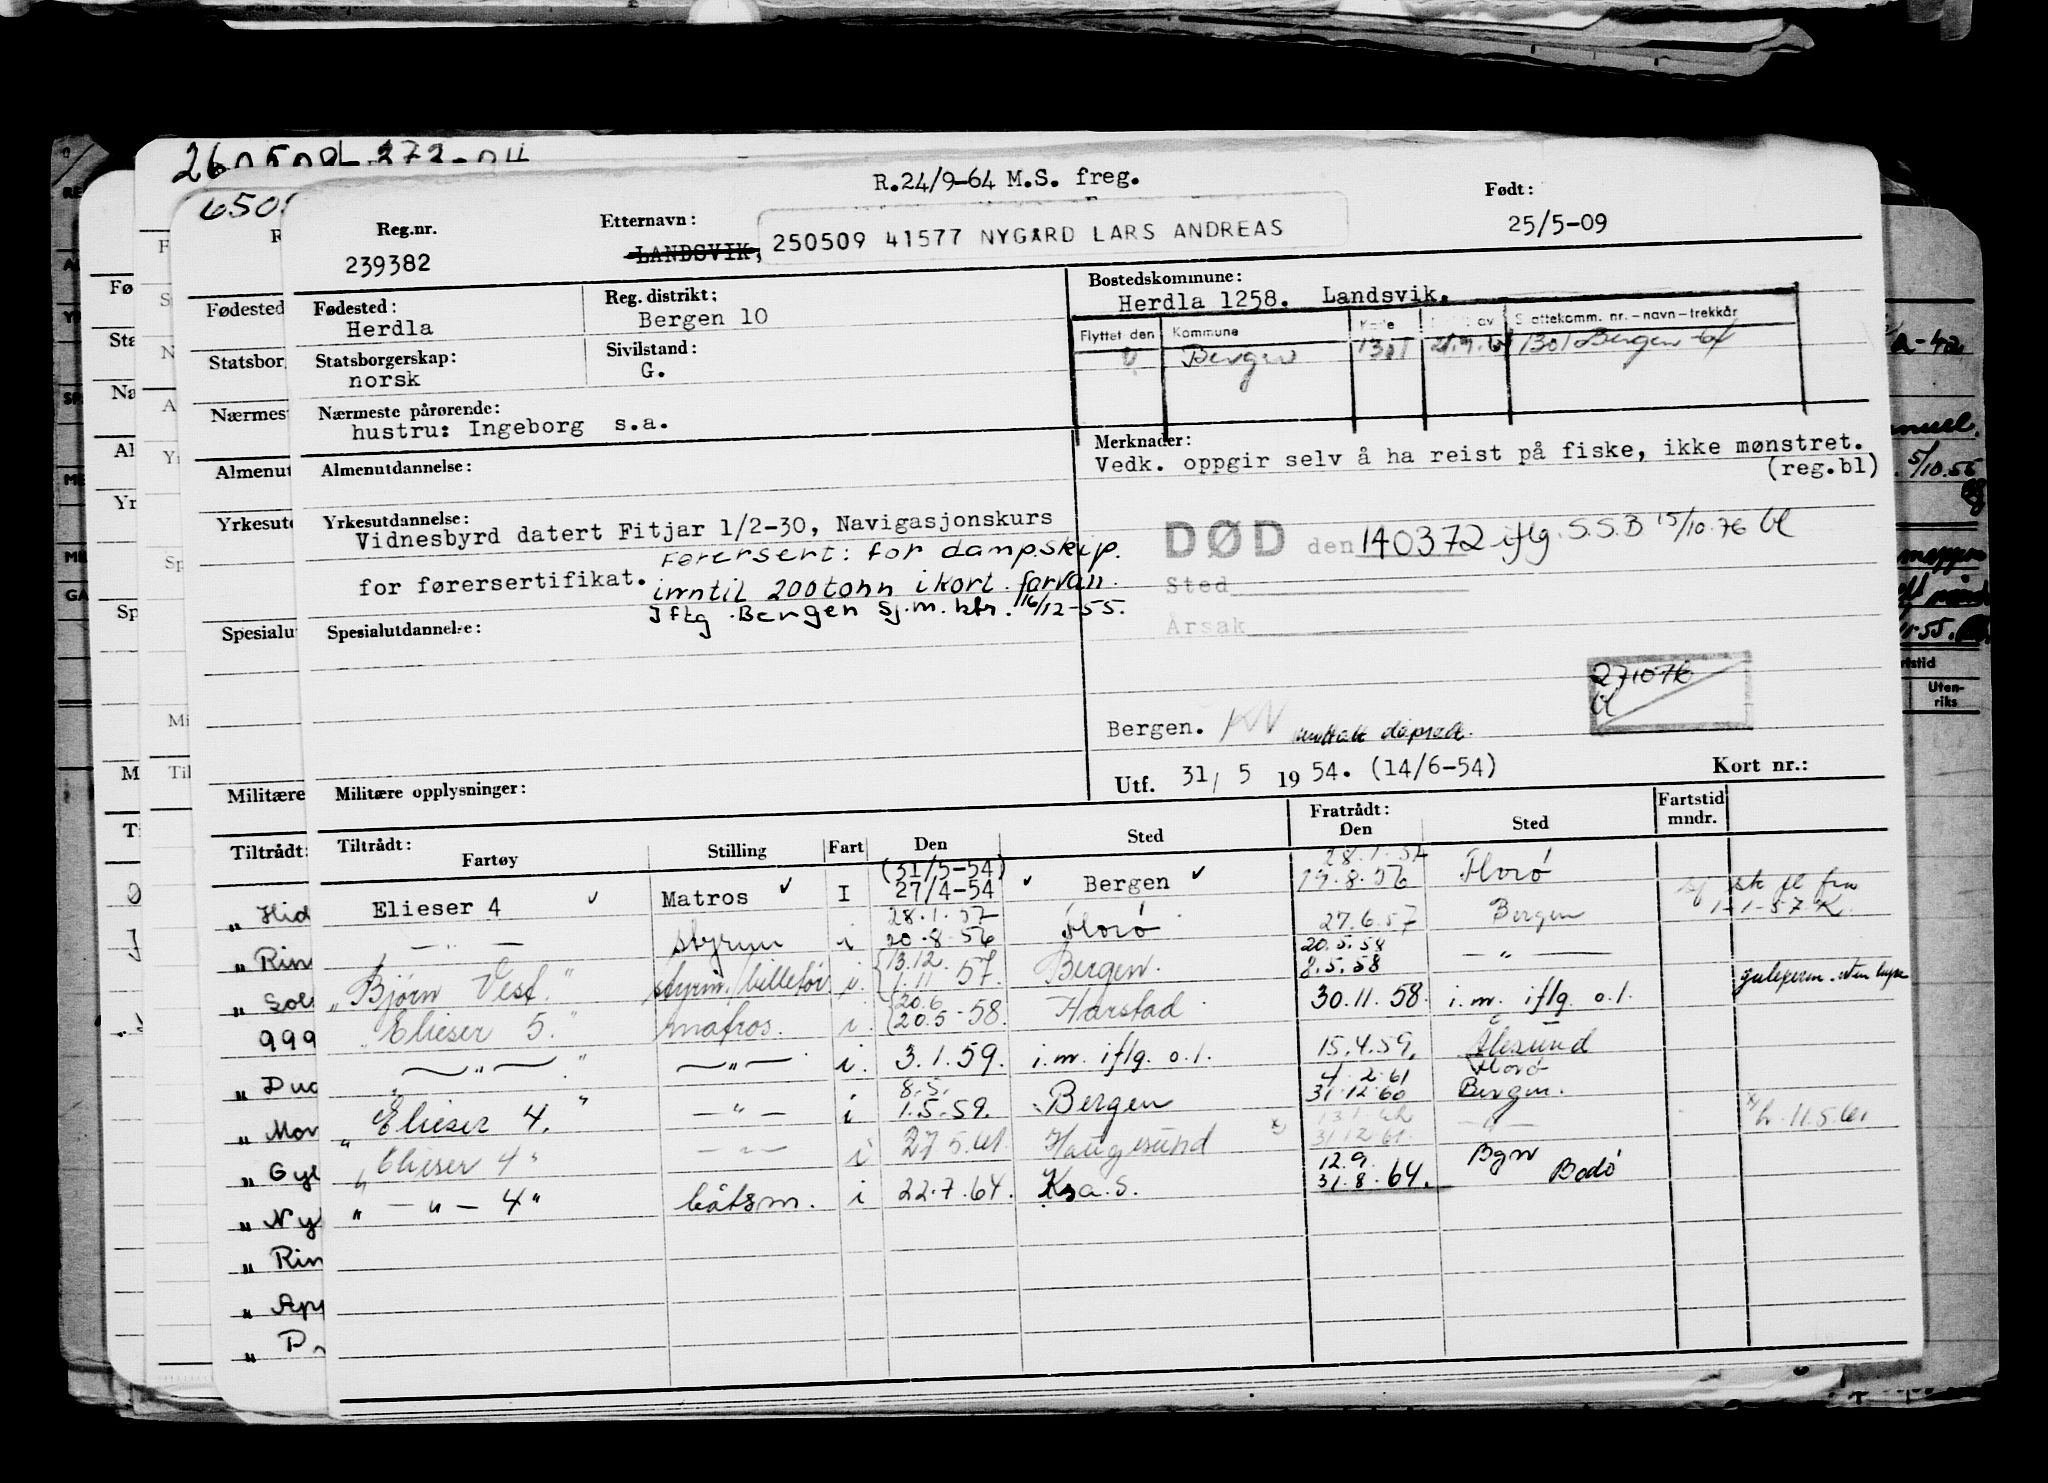 260509 272-04
6505
R.24/9-64 M.S. freg.
Reg.nr.
239382
Etternavn:
LANDSVIK,
250509 41577 NYGÅRD LARS ANDREAS
Født:
25/5-09
Fødested:
Herdla
Reg. distrikt:
Bergen 10
Bostedskommune:
Herdla 1258. Landsvik.
Flyttet den
Kommune
Skattekomm. nr.-navn-trekkår
Bergen 1301 1301 Bergen -64
Statsborgerskap:
norsk
Sivilstand:
G.
Nærmeste pårørende:
hustru: Ingeborg s.a.
Almenutdannelse:
Merknader:
Vedk. oppgir selv å ha reist på fiske, ikke mønstret.
(reg.bl)
Yrkesutdannelse:
Vidnesbyrd datert Fitjar 1/2-30, Navigasjonskurs
for førersertifikat.
Førersert: for dampskip.
inntil 200 tonn i kort farvan.
Iflg. Bergen sj.m.ktr. 16/12-55.
DØD den 140372 iflg. S.S.B 15/10.76 bl
Sted
Årsak
Spesialutdannelse:
271076
bl
Bergen. KV
Utf. 31/ 5 1954. (14/6-54)
Kort nr.:
Militære opplysninger:
Tiltrådt:
Fartøy
Stilling
Fart
Den
Sted
Fratrådt:
Den
Sted
Fartstid
mndr.
Elieser 4 Matros I (31/5-54) 27/4-54 Bergen 28.1.57 19.8.56 Florø
1-1-57 K.
— " — styrm i 28.1.57 20.8.56 Florø 27.6.57 Bergen
"Bjørn Vest" styrm./billettør. i. 13.12. 1.11 57. Bergen. 20.5.58 8.5.58 — " —
"Elieser 5." matros. i. 20.6 20.5-58. Harstad 30.11.58. i.m. iflg. o.l.
" — " — " — " — i. 3.1.59. i.m. iflg. o.l. 15.4.59. Ålesund
"Elieser 4." — " — i 8.5. 1.5.59. Bergen 4.2.61 31.12.60 Florø Bergen.
"Elieser 4" — " — i 27.5.61. Haugesund 31.12.61. — " —
11.5.61
" — " — 4" båtsm. i 22.7.64. Kra.S. 12.9. 31.8.64. Bgn Bodø
Fødested
Statsborg
Nærmest
Almenut
Yrkesut
Spesialut
Militære
Tiltrådt:
" Hid
" Rin
" Sol
999
" Duc
" Mor
" Gyl
" Ny
" Rin
" App
" P
5/10.55
Uten-
riks